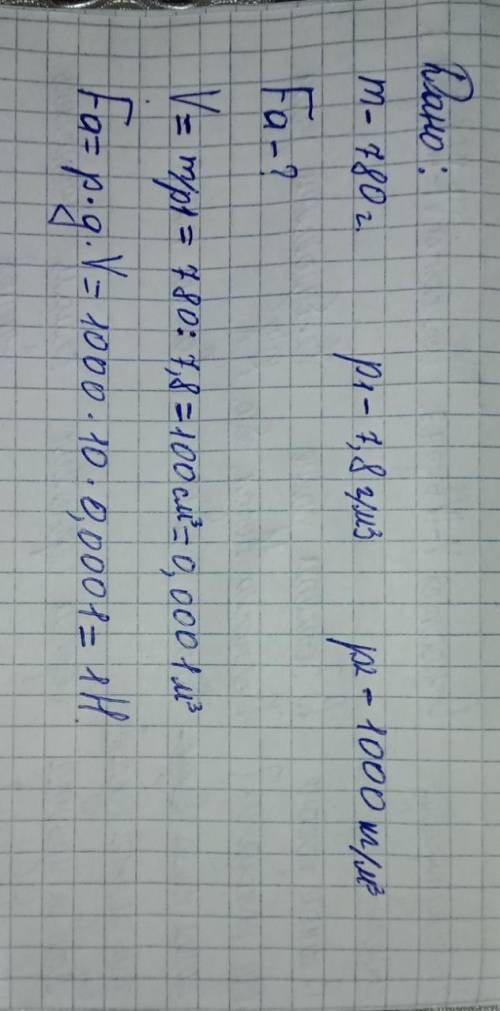 Дано:
m - 780 г. p1 - 7,8 г/м3 p2 - 1000 кг/м³
Fa - ?
V = m/p1 = 780 : 7,8 = 100 см³ = 0,0001 м³
Fa = p · g · V = 1000 · 10 · 0,0001 = 1Н.